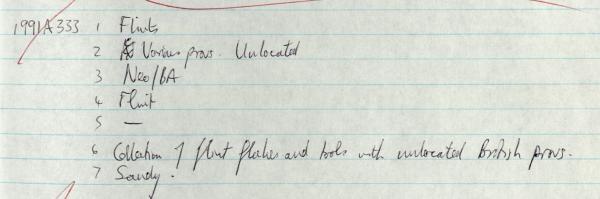 1991A333 1 Flints
2 Various provs. Unlocated
3 Neo/BA
4 Flint
5 —
6 Collection of flint flakes and tools with unlocated British provs.
7 Sandy.